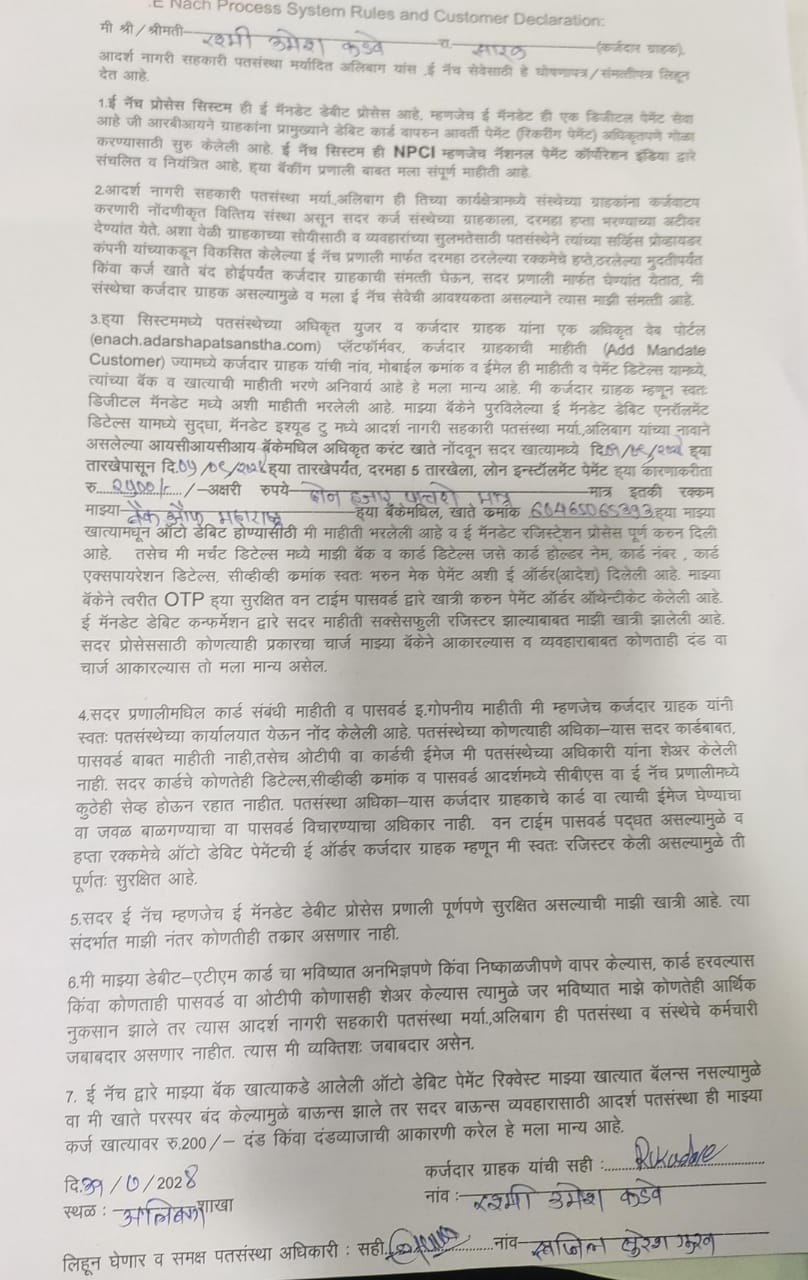 .E Nach Process System Rules and Customer Declaration:
मी श्री/श्रीमती रश्मी उमेश कडवे रा. (कर्जदार ग्राहक).
आदर्श नागरी सहकारी पतसंस्था मर्यादित अलिबाग यांस ,ई नॅच सेवेसाठी हे घोषणापत्र/संमत्तीपत्र लिहून
देत आहे.
1.ई नॅच प्रोसेस सिस्टिम ही ई मॅनडेट डेबीट प्रोसेस आहे, म्हणजेच ई मॅनडेट ही एक डिजीटल पेमेंट सेवा
आहे जी आरबीआयने ग्राहकांना प्रामुख्याने डेबिट कार्ड वापरुन आवर्ती पेमेंट (रिकरींग पेमेंट) अधिकृतपणे गोळा
करण्यासाठी सुरु केलेली आहे. ई नॅच सिस्टिम ही NPCI म्हणजेच नॅशनल पेमेंट कॉर्पोरेशन इंडिया द्वारे
संचलित व नियंत्रित आहे, ह्या बॅकींग प्रणाली बाबत मला संपूर्ण माहीती आहे.
2.आदर्श नागरी सहकारी पतसंस्था मर्या.,अलिबाग ही तिच्या कार्यक्षेत्रामध्ये संस्थेच्या ग्राहकांना कर्जवाटप
करणारी नोंदणीकृत वित्तिय संस्था असून सदर कर्ज संस्थेच्या ग्राहकाला, दरमहा हप्ता भरण्याच्या अटीवर
देण्यांत येते. अशा वेळी ग्राहकाच्या सोयीसाठी व व्यवहारांच्या सुलभतेसाठी पतसंस्थेने त्यांच्या सर्व्हिस प्रोव्हायडर
कंपनी यांच्याकडून विकसित केलेल्या ई नॅच प्रणाली मार्फत दरमहा ठरलेल्या रक्कमेचे हप्ते,ठरलेल्या मुदतीपर्यंत
किंवा कर्ज खाते बंद होईपर्यंत कर्जदार ग्राहकाची संमत्ती घेऊन, सदर प्रणाली मार्फत घेण्यांत येतात, मी
संस्थेचा कर्जदार ग्राहक असल्यामुळे व मला ई नॅच सेवेची आवश्यकता असल्याने त्यास माझी संमत्ती आहे.
3.ह्या सिस्टिममध्ये पतसंस्थेच्या अधिकृत युजर व कर्जदार ग्राहक यांना एक अधिकृत वेब पोर्टल
(enach.adarshapatsanstha.com) प्लॅटफॉर्मवर, कर्जदार ग्राहकाची माहीती (Add Mandate
Customer) ज्यामध्ये कर्जदार ग्राहक यांची नांव, मोबाईल क्रमांक व ईमेल ही माहीती व पेमेंट डिटेल्स यामध्ये,
त्यांच्या बँक व खात्याची माहीती भरणे अनिवार्य आहे हे मला मान्य आहे. मी कर्जदार ग्राहक म्हणून स्वतः
डिजीटल मॅनडेट मध्ये अशी माहीती भरलेली आहे. माझ्या बॅकेने पुरविलेल्या ई मॅनडेट डेबिट एनरॉलमेंट
डिटेल्स यामध्ये सुद्धा, मॅनडेट इश्यूड टु मध्ये आदर्श नागरी सहकारी पतसंस्था मर्या.,अलिबाग यांच्या नावाने
असलेल्या आयसीआयसीआय बॅकेमधिल अधिकृत करंट खाते नोंदवून सदर खात्यामध्ये दि. ह्या
तारखेपासून दि. ह्या तारखेपर्यंत, दरमहा 5 तारखेला, लोन इन्स्टॉलमेंट पेमेंट ह्या कारणाकरीता
रु.२५००/-/-अक्षरी रुपये दोन हजार पाचशे मात्र मात्र इतकी रक्कम
माझ्या बँक ऑफ महाराष्ट्र ह्या बॅकेमधिल, खाते क्रमांक 60465065393 ह्या माझ्या
खात्यामधून ऑटो डेबिट होण्यासाठी मी माहीती भरलेली आहे व ई मॅनडेट रजिस्ट्रेशन प्रोसेस पूर्ण करुन दिली
आहे. तसेच मी मर्चंट डिटेल्स मध्ये माझी बँक व कार्ड डिटेल्स जसे कार्ड होल्डर नेम, कार्ड नंबर , कार्ड
एक्सपायरेशन डिटेल्स, सीव्हीव्ही क्रमांक स्वतः भरुन मेक पेमेंट अशी ई ऑर्डर(आदेश) दिलेली आहे. माझ्या
बॅकेने त्वरीत OTP ह्या सुरक्षित वन टाईम पासवर्ड द्वारे खात्री करुन पेमेंट ऑर्डर ऑथेन्टीकेट केलेली आहे.
ई मॅनडेट डेबिट कन्फर्मेशन द्वारे सदर माहीती सक्सेसफुली रजिस्टर झाल्याबाबत माझी खात्री झालेली आहे.
सदर प्रोसेससाठी कोणत्याही प्रकारचा चार्ज माझ्या बॅकेने आकारल्यास व व्यवहाराबाबत कोणताही दंड वा
चार्ज आकारल्यास तो मला मान्य असेल.
4.सदर प्रणालीमधिल कार्ड संबंधी माहीती व पासवर्ड इ.गोपनीय माहीती मी म्हणजेच कर्जदार ग्राहक यांनी
स्वतः पतसंस्थेच्या कार्यालयात येऊन नोंद केलेली आहे. पतसंस्थेच्या कोणत्याही अधिका–यास सदर कार्डबाबत,
पासवर्ड बाबत माहीती नाही,तसेच ओटीपी वा कार्डची ईमेज मी पतसंस्थेच्या अधिकारी यांना शेअर केलेली
नाही. सदर कार्डचे कोणतेही डिटेल्स,सीव्हीव्ही क्रमांक व पासवर्ड आदर्शमध्ये सीबीएस वा ई नॅच प्रणालीमध्ये
कुठेही सेव्ह होऊन रहात नाहीत. पतसंस्था अधिका–यास कर्जदार ग्राहकाचे कार्ड वा त्याची ईमेज घेण्याचा
वा जवळ बाळगण्याचा वा पासवर्ड विचारण्याचा अधिकार नाही. वन टाईम पासवर्ड पद्धत असल्यामुळे व
हप्ता रक्कमेचे ऑटो डेबिट पेमेंटची ई ऑर्डर कर्जदार ग्राहक म्हणून मी स्वतः रजिस्टर केली असल्यामुळे ती
पूर्णतः सुरक्षित आहे.
5.सदर ई नॅच म्हणजेच ई मॅनडेट डेबीट प्रोसेस प्रणाली पूर्णपणे सुरक्षित असल्याची माझी खात्री आहे. त्या
संदर्भात माझी नंतर कोणतीही तक्रार असणार नाही.
6.मी माझ्या डेबीट–एटीएम कार्ड चा भविष्यात अनभिज्ञपणे किंवा निष्काळजीपणे वापर केल्यास, कार्ड हरवल्यास
किंवा कोणताही पासवर्ड वा ओटीपी कोणासही शेअर केल्यास त्यामुळे जर भविष्यात माझे कोणतेही आर्थिक
नुकसान झाले तर त्यास आदर्श नागरी सहकारी पतसंस्था मर्या.,अलिबाग ही पतसंस्था व संस्थेचे कर्मचारी
जबाबदार असणार नाहीत. त्यास मी व्यक्तिशः जबाबदार असेन.
7. ई नॅच द्वारे माझ्या बॅक खात्याकडे आलेली ऑटो डेबिट पेमेंट रिक्वेस्ट माझ्या खात्यात बॅलन्स नसल्यामुळे
वा मी खाते परस्पर बंद केल्यामुळे बाऊन्स झाले तर सदर बाऊन्स व्यवहारासाठी आदर्श पतसंस्था ही माझ्या
कर्ज खात्यावर रु.200/– दंड किंवा दंडव्याजाची आकारणी करेल हे मला मान्य आहे.
कर्जदार ग्राहक यांची सही :
दि. /७/2024
नांव :- रश्मी उमेश कडवे
स्थळ : शाखा
लिहून घेणार व समक्ष पतसंस्था अधिकारी : सही नांव